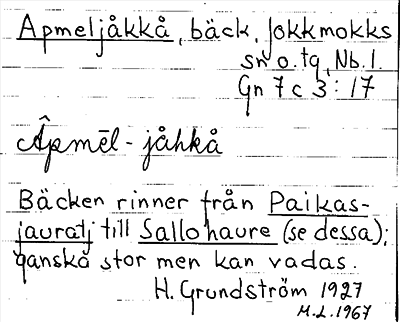 Apmeljåkkå, bäck, Jokkmokks
sn o. tg, Nb. l.
Gn 7 c 3 : 17
Âpmēl - jåhkå
Bäcken rinner från Paikas-
jauratj till Sallohaure (se dessa);
ganska stor men kan vadas.
H. Grundström 1927
M.L. 1967